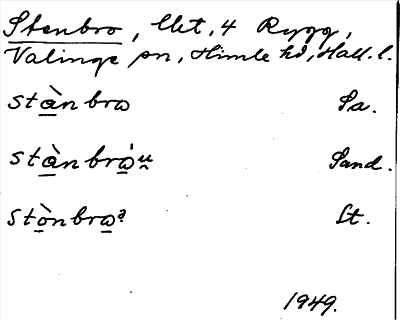 Stenbro, Met, 4 Rygg,
Valinge sn, Himle hd, Hall. l.
stànbrω Sa.
stànbrω̇u Sand.
stònbrωa St.
1949.